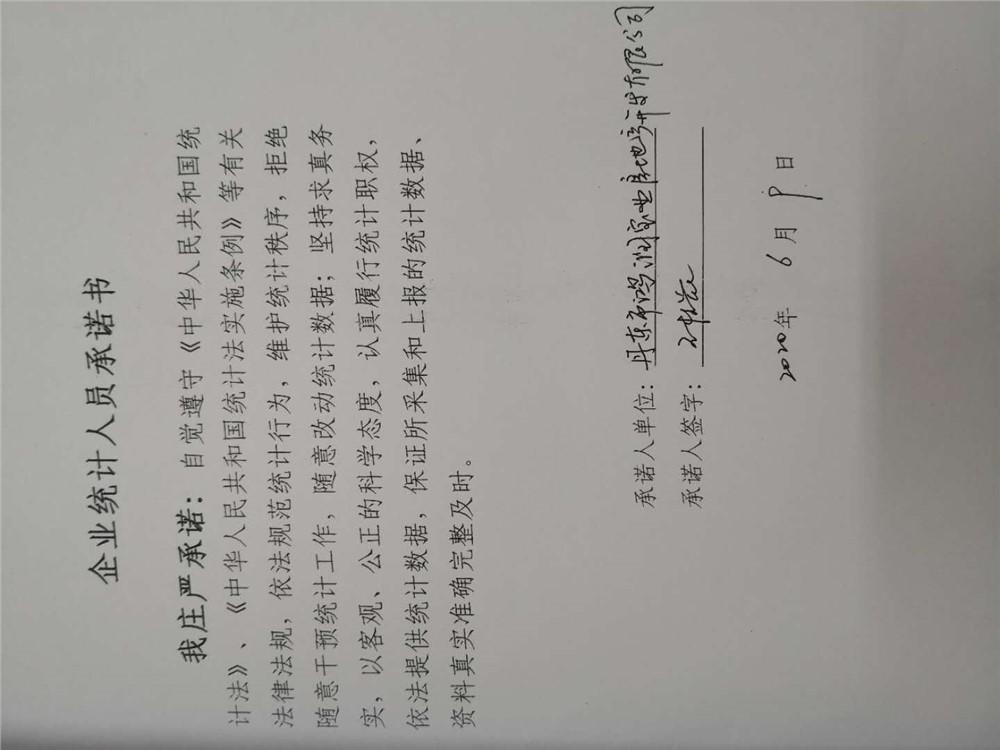 企业统计人员承诺书
我庄严承诺：自觉遵守《中华人民共和国统
计法》、《中华人民共和国统计法实施条例》等有关
法律法规，依法规范统计行为，维护统计秩序，拒绝
随意干预统计工作，随意改动统计数据；坚持求真务
实，以客观、公正的科学态度，认真履行统计职权，
依法提供统计数据，保证所采集和上报的统计数据、
资料真实准确完整及时。
承诺人单位：丹东市鸿润宝业房地产开发有限公司
承诺人签字：
2020年 6月 9日